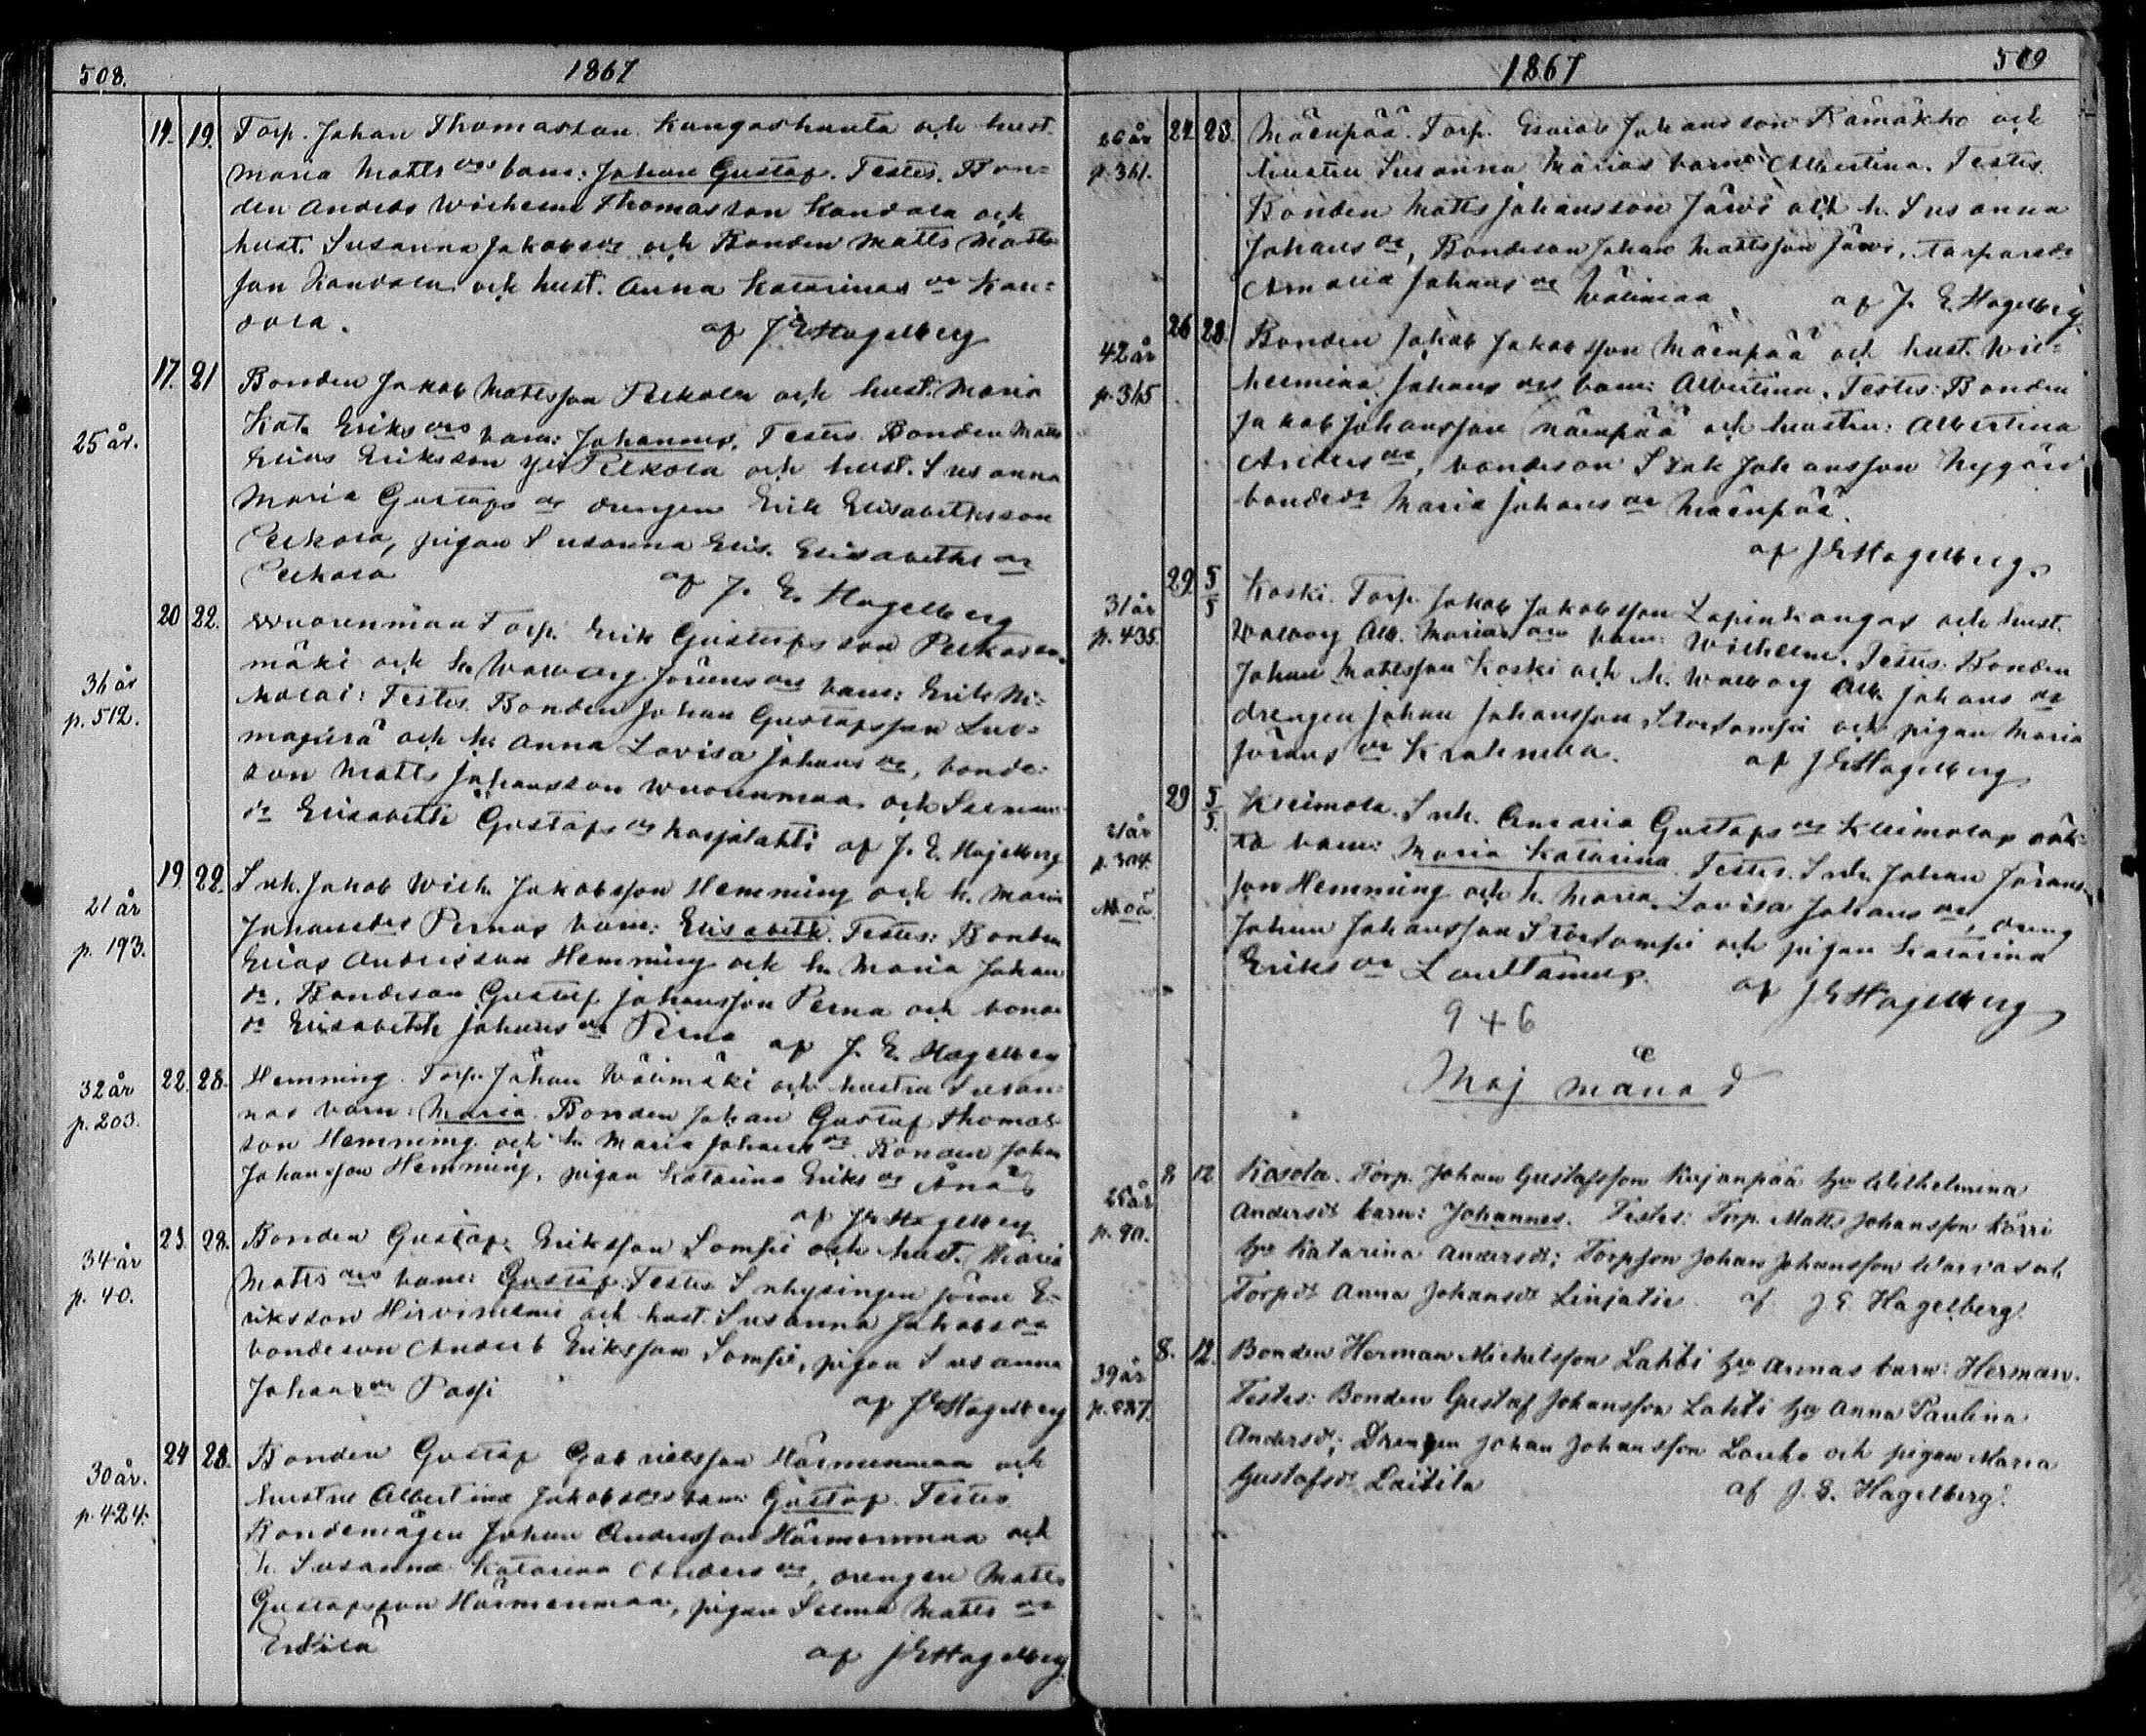 508. 1867
14. 19. Torp. Johan Thomasson Kangashanta och hust.
Maria Matts drs barn: Johan Gustaf. Testes. Bon=
den Anders Wilhelm Thomasson Kandola och
hust. Susanna Jakobs dr och Bonden Matts Matts
son Kandola och hust. Anna Katarinas dr Kan=
dola. af J E Hagelberg
17. 21 Bonden Jakob Mattsson Pelkola och hust. Maria
25 år. Kat. Eriks drs barn: Johannes. Testes Bonden Matts
Elias Eriksson Pelkola och hust. Susanna
Maria Gustafs dr drengen Erik Elisabethsson
Pelkola, pigan Susanna Elis. Elisabeths dr
Pelkola af J. E. Hagelberg
20 22. Wuorenmaa Torp. Erik Gustafsson Pelkosen=
36 år mäki och h. Walborg Jörans drs barn: Erik Ni=
p. 512. kolai: Testes. Bonden Johan Gustafsson Luo=
och h. Anna Lovisa Johans dr, bonde=
son Matts Johansson Wuorenmaa och
dr Elisabeth Gustafs dr Karjalahti af J. E. Hagelberg
19 22. Inh. Jakob Wilh. Jakobsson Hemming och h. Maria
21 år Johansdrs Pernas barn: Elisabeth. Testes: Bonden
p. 193. Elias Andersson Hemming och h. Maria Johans
dr. Bondeson Gustaf Johansson Perna och bonde
dr Elisabeth Johans dr Perna af J. E. Hagelberg
22. 28. Hemming. Torp. Johan Välimäki och hustru Susan=
32 år nas barn: Maria. Bonden Johan Gustaf Thomas=
p. 203. son Hemming och h. Maria Johans dr. Bonden Johan
Johansson Hemming, pigan Katarina Eriks dr
af J E Hagelberg
23. 28. Bonden Gustaf Eriksson Sompi och hust. Maria
34 år Matts drs barn: Gustaf. Testes Inhysingen Jöran E=
p. 40. riksson Hirviniemi och hust. Susanna Jakobs dr
bondeson Anders Eriksson Sompi, pigan Susanna
Johans dr Passi af J E Hagelberg
24 28. Bonden Gustaf Gabrielsson Härmänmaa och
30 år. hustru Albertina Jakobs drs barn: Gustaf. Testes
p. 424. Bondemågen Johan Andersson Härmänmaa och
h. Susanna Katarina Anders dr, drengen Matts
Gustafsson Härmänmaa, pigan Selma Matts dr
Erkilä af J E Hagelberg
1867 509
22 23. Mäenpää. Torp. Esaias Johansson Rämäkko och
26 år hustru Susanna Marias barn: Albertina. Testes.
p. 361. Bonden Matts Johansson Järvi och h. Susanna
Johans dr, Bondeson Johan Mattsson Järvi, torparedr
Amalia Johans dr Välimaa af J. E. Hagelberg
26 28. Bonden Jakob Jakobsson Mäenpää och hust. Wil=
42 år helmina Johans drs barn: Albertina. Testes: Bonden
p. 365 Jakob Johansson Mäenpää och hustru: Albertina
Anders dr, bondeson Isak Johansson Nygård
bondedr Maria Johans dr Mäenpää.
af J E Hagelberg
29. 5/5 Koski. Torp. Jakob Jakobsson Lapinkangas och hust.
31 år Walborg Alb. Marias drs barn: Wilhelm. Testes: Bonden
p. 435. Johan Mattsson Koski och h. Walborg Alb. Johans dr
drengen Johan Johansson Storsompi och pigan Maria
Jörans dr Kreknela. af J E Hagelberg
29 5/5. Kleimola. Inh. Amalia Gustafs dr Kleimolas oäk=
21 år ta barn: Maria Katarina. Testes. Inh. Johan Jörans=
p. 304. son Hemming och h. Maria Lovisa Johans dr, dreng
Moä. Johan Johansson Storsompi och pigan Katarina
Eriks dr Luoltamus. af J E Hagelberg
9 + 6
Maj månad
8 12 Kasola. Torp. Johan Gustafsson Kujanpää hu Wilhelmina
25 år Andersdr barn: Johannes. Testes: Torp. Matts Johansson Körri
p. 90. hu Katarina Andersdr; Torpson Johan Johansson Warvas och
Torpdr Anna Johansdr Linjalie af J. E. Hagelberg.
8. 12. Bonden Herman Michelsson Lahti hu Annas barn: Herman.
39 år Testes: Bonden Gustaf Johansson Lahti hu Anna Paulina
p. 227. Andersdr; Drengen Johan Johansson Louko och pigan Maria
Gustafsdr Laitila af J. E. Hagelberg.